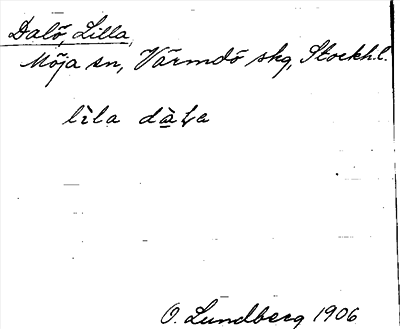 Dalö, Lilla,
Möja sn, Värmdö skg, Stockh.l.
lìla
O. Lundberg 1906